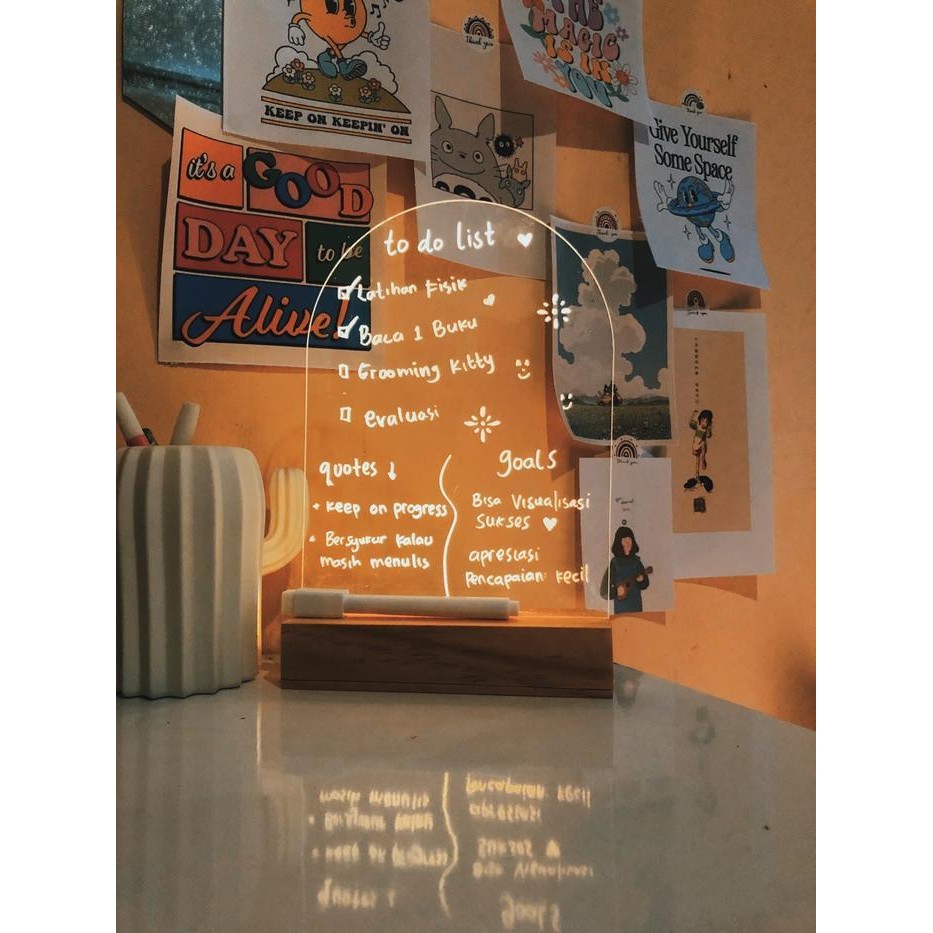 THE
MAGIC
IS IN
YOU
Thank you
KEEP ON KEEPIN' ON
Give Yourself
Some Space
it's a GOOD
DAY to be
Alive!
Thank you
to do list
Latihan Fisik
Baca 1 Buku
Grooming Kitty
evaluasi
quotes ↓
• keep on progress
• Bersyukur kalau
masih menulis
goals
Bisa Visualisasi
Sukses
apresiasi
Pencapaian kecil
Thank you